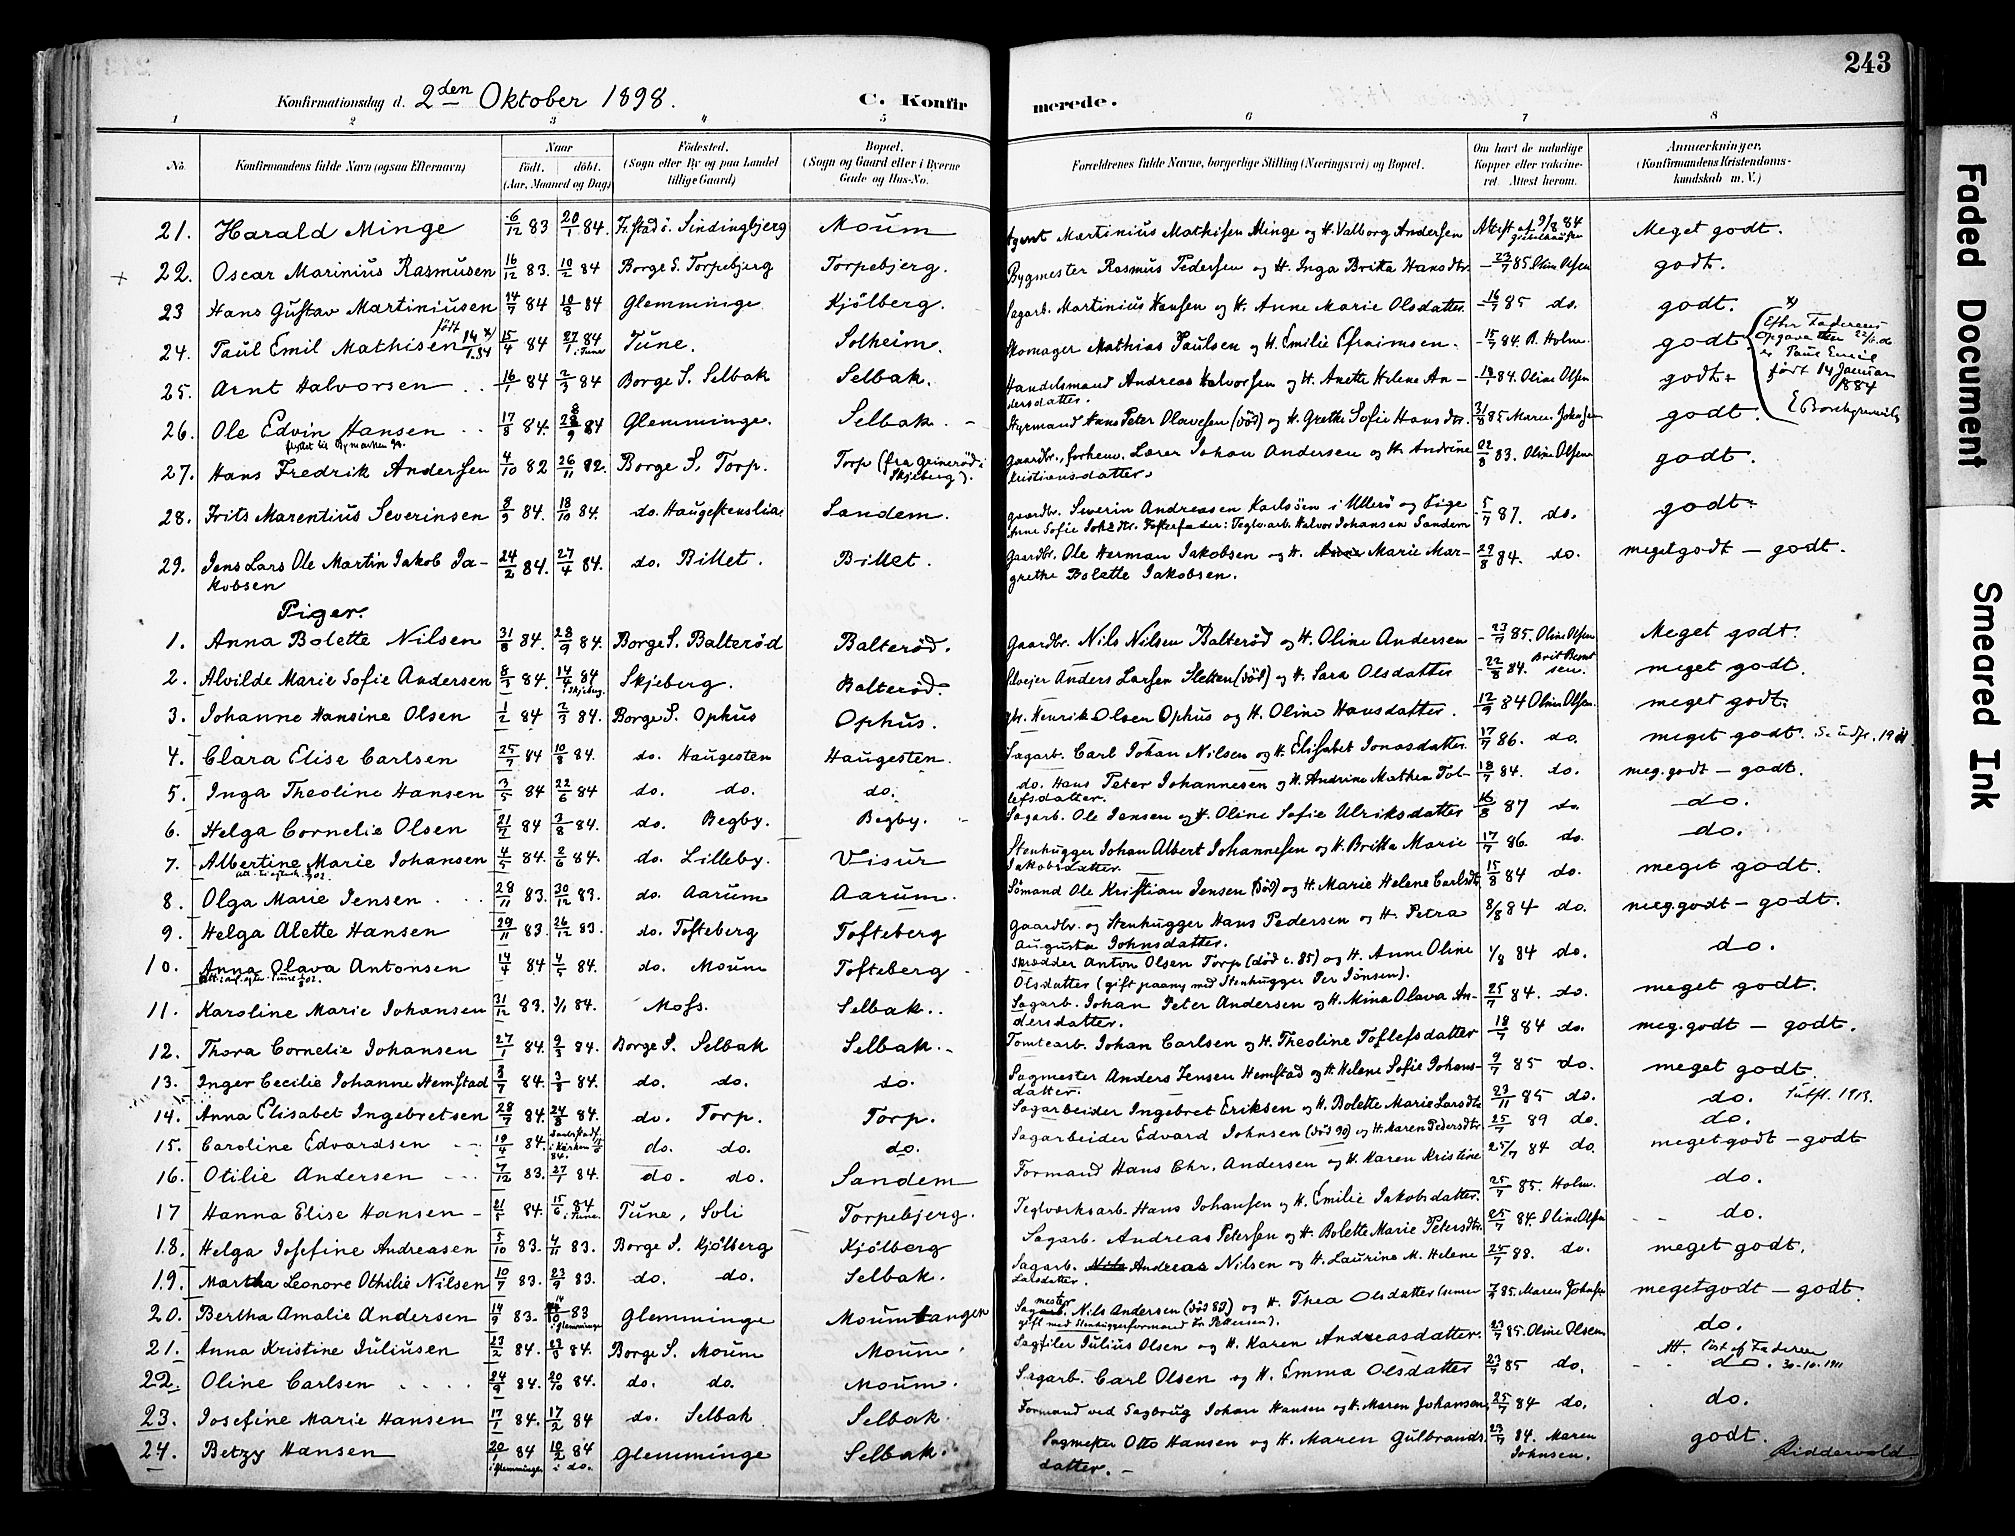 243
Konfirmationsdag d. 2den Oktober 1898. C. Konfirmerede.
1 2 3 4 5 6 7 8
No. Konfirmandens fulde Navn (ogsaa Efternavn) Naar født. døbt. (Aar, Maaned og Dag) Fødested. (Sogn eller By og paa Landet tillige Gaard) Bopæl. (Sogn og Gaard eller i Byerne Gade og Hus-No. Forældrenes fulde Navne, borgerlige Stilling (Næringsvei) og Bopæl. Om havt de naturlige Kopper eller vaccineret. Attest herom. Anmærkninger. (Konfirmandens Kristendomskundskab m. V.)
21. Harald Minge 6/12 83 20/1 84. Fr.stad i. Sindingbjerg Moum Agent Martinius Mathisen Minge og H. Valborg Andersen Attest af 9/8 84 Meget godt.
22. Oscar Marinius Rasmusen 16/12 83. 10/2 84 Borge S. Torpebjerg Torpebjerg. Bygmester Rasmus Pedersen og H. Inga Britta Hansdtr. - 23/7 85 Oline Olsen godt.
23 Hans Gustav Martiniusen 14/7 84 10/8 84 Glemminge Kjölberg. Sagarb. Martinius Hansen og H. Anne Marie Olsdatter. - 16/7 85 do. godt.
24. Paul Emil Mathisen født 14/1 84 x) 15/4 84 27/1 84 i Tune Tune. Solheim. Skomager Mathias Paulsen og H. Emilie Efraimsen. - 15/7 84. B. Holm. godt x) Efter Faderens Opgave er Paul Emil født 14 Januar 1884
25. Arnt Halvorsen .. 16/1 84 2/3 84 Borge S. Selbak Selbak. Handelsmand Andreas Halvorsen og H. Anette Helene Andersdatter. - 84. Oline Olsen godt.
26. Ole Edvin Hansen .. 17/8 84. 28/9 84 Glemminge. Selbak. Styrmand Hans Peter Olavesen (död) og H. Grethe Sofie Hansdtr. 31/8 85 Maren Johnsen godt.
27. Hans Fredrik Andersen 4/10 82 26/11 82. Borge S. Torp. Torp (fra Skjeberg). Gaardbr., forhenv. Lærer Johan Andersen og H. Andrine Kristiansdatter. 22/8 83. Oline Olsen godt.
28. Frits Marentius Severinsen 8/9 84. 18/10 84. do. Haugestenslia. Sandem. Gaardbr. Severin Andreasen Karlsöen i og Pige Anne Sofie Fosterfader: Teglv.arb. Halvor Johansen Sandem 5/7 87. do. godt.
29. Jens Lars Ole Martin Jakob Jakobsen 24/2 84. 27/4 84. do. Billet. Billet. Gaardbr. Ole Herman Jakobsen og H. Anne Marie Margrethe Bolette Jakobsen. 29/8 84. do. meget godt - godt.
Piger.
1. Anna Bolette Nilsen 31/8 84. 28/9 84. Borge S. Balteröd Balteröd. Gaardbr. Nils Nilsen Balteröd og H. Oline Andersen - 23/7 85. Oline Olsen Meget godt.
2. Alvilde Marie Sofie Andersen 8/3 84. 14/4 84 i Skjeberg. Skjeberg. Balteröd. Anders Larsen Sletten (död) og H. Sara Olsdatter - 22/8 84. meget godt.
3. Johanne Hansine Olsen 1/2 84 2/3 84. Borge S. Ophus Ophus. gbr. Henrik Olsen Ophus og H. Oline Hansdatter. 12/9 84 Oline Olsen. meget godt.
4. Clara Elise Carlsen 25/7 84 10/8 84. do. Haugesten Haugesten. Sagarb. Carl Johan Nilsen og H. Elisabet Jonasdatter. 17/7 86. do. meget godt.
5. Inga Theoline Hansen 3/5 84 22/6 84 do. do. do. do. Hans Peter Johannesen og H. Andrine Mathea Tollefsdatter. 18/7 84. do. meg. godt - godt.
6. Helga Cornelie Olsen 21/7 84 3/8 84. do. Begby. Begby. Sagarb. Ole Jensen og H. Oline Sofie Ulriksdatter 16/8 87 do. do.
7. Albertine Marie Johansen 4/5 84. 2/6 84. do. Lilleby. Visur Stenhugger Johan Albert Johannesen og H. Britta Marie Jakobsdatter. 17/7 86. do. do.
8. Olga Marie Jensen . 28/11 83. 30/12 83. do. Aarum Aarum. Sömand Ole Kristian Jensen (död) og H. Marie Helene Carlsdtr. 15/8 84 do. meget godt.
9. Helga Alette Hansen 29/11 83. 26/12 83. do. Tofteberg Tofteberg Gaardbr. og Stenhugger Hans Pedersen og H. Petra Augusta Johnsdatter. 8/8 84 do. meg. godt - godt.
10. Anna Olava Antonsen 14/4 84 4/5 84. do. Moum Tofteberg Skrædder Anton Olsen Torp (död c. 85) og H. Anne Oline Olsdatter (gift paany med Stenhugger Per Jönsen). 1/8 84 do. do.
11. Karoline Marie Johansen 31/12 83. 3/1 84. Moss. Selbak.. Sagarb. Johan Peter Andersen og H. Mina Olava Andersdatter. 25/7 84. do. meget godt.
12. Thora Cornelie Johansen 27/1 84. 9/3 84. Borge S. Selbak Selbak.. Tomtearb. Johan Carlsen og H. Theoline Tollefsdatter 18/7 84 do. meg. godt - godt.
13. Inger Cecilie Johanne Hemstad 3/7 84. 3/8 84. do. do. do. Sagmester Anders Jensen Hemstad og H. Helene Sofie Johansdatter. 9/7 85 do. meget godt
14. Anna Elisabet Ingebretsen 28/7 84. 24/8 84. do. Torp. Torp. Sagarbeider Ingebret Eriksen og H. Bolette Marie Larsdtr. 23/11 85 do. do. 1913.
15. Caroline Edvardsen 19/4 84. i Kirken 84. do. do. do. Sagarbeider Edvard Johnsen (död 90) og H. Karen Pedersdtr. 25/7 89 do. do.
16. Otilie Andersen 7/12 83. 27/1 84. do. do. Sandem Formand Hans Chr. Andersen og H. Karen Kristine 25/7 84 do. meget godt - godt
17 Hanna Elise Hansen - 21/5 84. 15/6 84 i Tune. Tune, Soli Torpebjerg. Teglværksarb. Hans Johansen og H. Emilie Jakobsdatter. 25/7 85. Holm. do.
18. Helga Josefine Andreasen 5/10 83. 4/11 83. Borge S. Kjölberg Kjölberg Sagarb. Andreas Petersen og H. Bolette Marie Petersdtr. 25/7 84. Oline Olsen do.
19. Martha Leonore Othilie Nilsen 10/7 83. 23/9 83. do. do. Selbak. Sagarb. Nils Andreas Nilsen og H. Laurine M. Helene Larsdatter. 25/7 88. do. meget godt.
20. Bertha Amalie Andersen 14/9 83. 14/10 83 i Glemminge Glemminge Moumtangen Sagmester Nils Andersen (död 89) og H. Thea Olsdatter 85. Maren Johnsen meget godt - godt.
21. Anna Kristine Juliusen 23/2 84. 23/3 84. Borge S. Moum Moum. Sagfiler Julius Olsen og H. Karen Andreasdatter. 23/7 85. Oline Olsen do.
22. Oline Carlsen .... 24/9 84. 20/10 84. do. do. Moum. Sagarb. Carl Olsen og H. Emma Olsdatter 23/7 85 do. do. Att. af Faderen 30-10-1911
23. Josefine Marie Hansen 17/1 84. 17/2 84 do. Selbak Selbak. Formand ved Sagbrug Johan Hansen og H. Maren Johansen 25/7 84 do. do.
24. Betzy Hansen 20/1 84 i Glemminge 10/2 84 i do. Glemminge Selbak. Sagmester Otto Hansen og H. Maren Gulbrandsdatter. - 23/7 84. Maren Johnsen. godt.
Riddervold
Faded Document
Smeared Ink